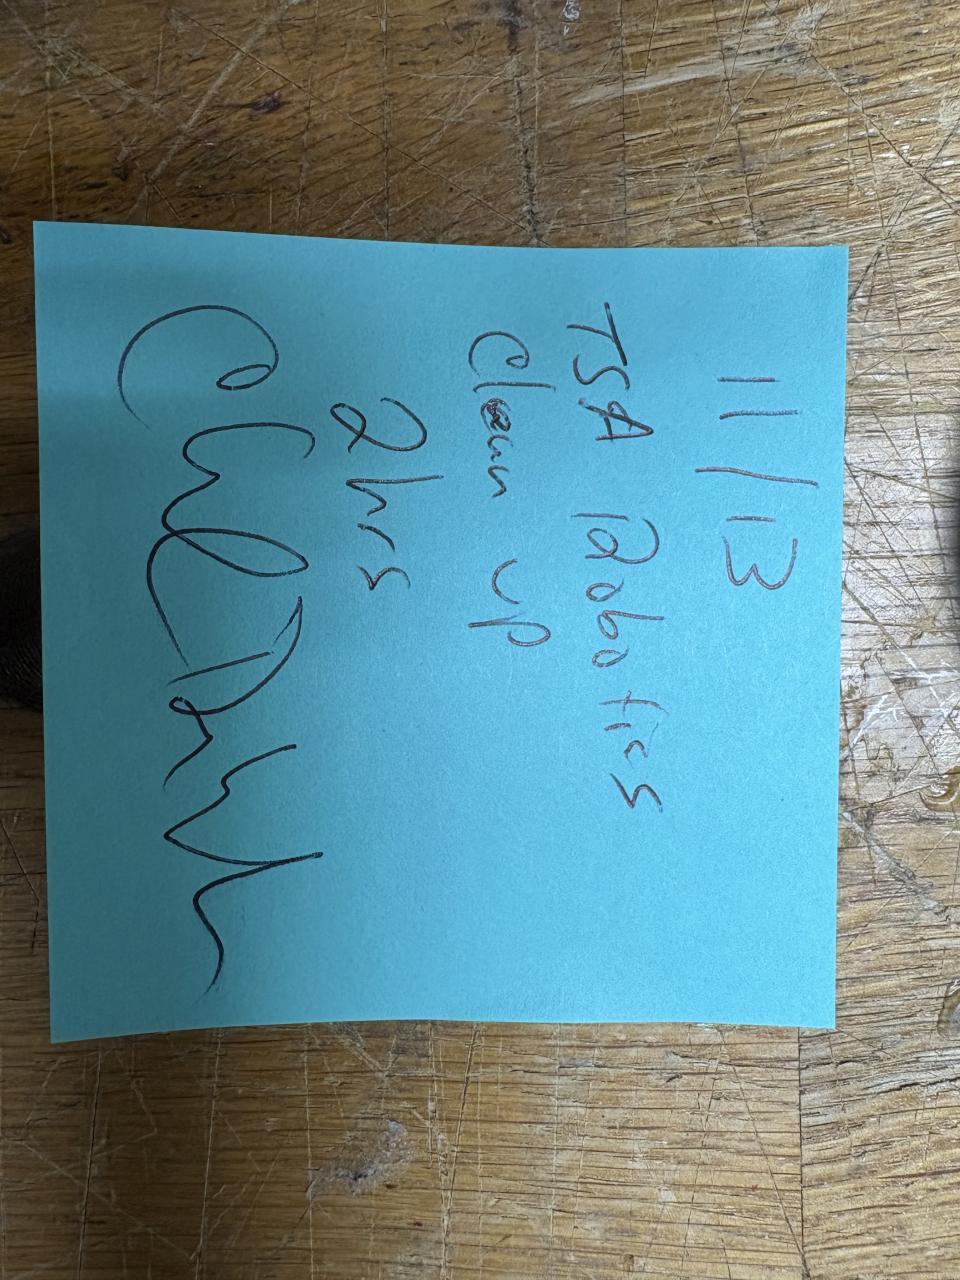 11/13
TSA Robotics
Clean up
2hrs